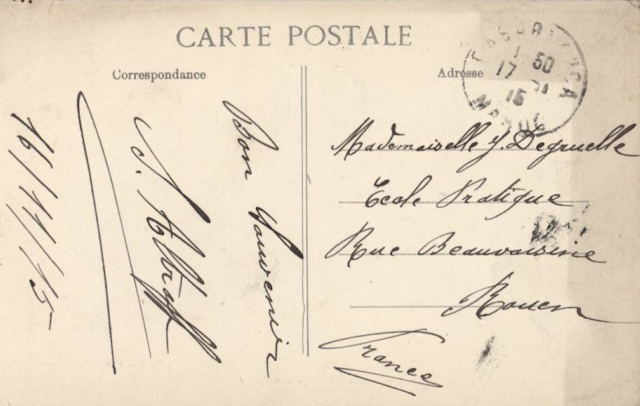 CARTE POSTALE
Correspondance
Adresse
CASABLANCA
1 50
17
15
MAROC
Bon Souvenir
16/11/15
Mademoiselle J. Degruelle
Ecole Pratique
Rue Beauvoisine
Rouen
France